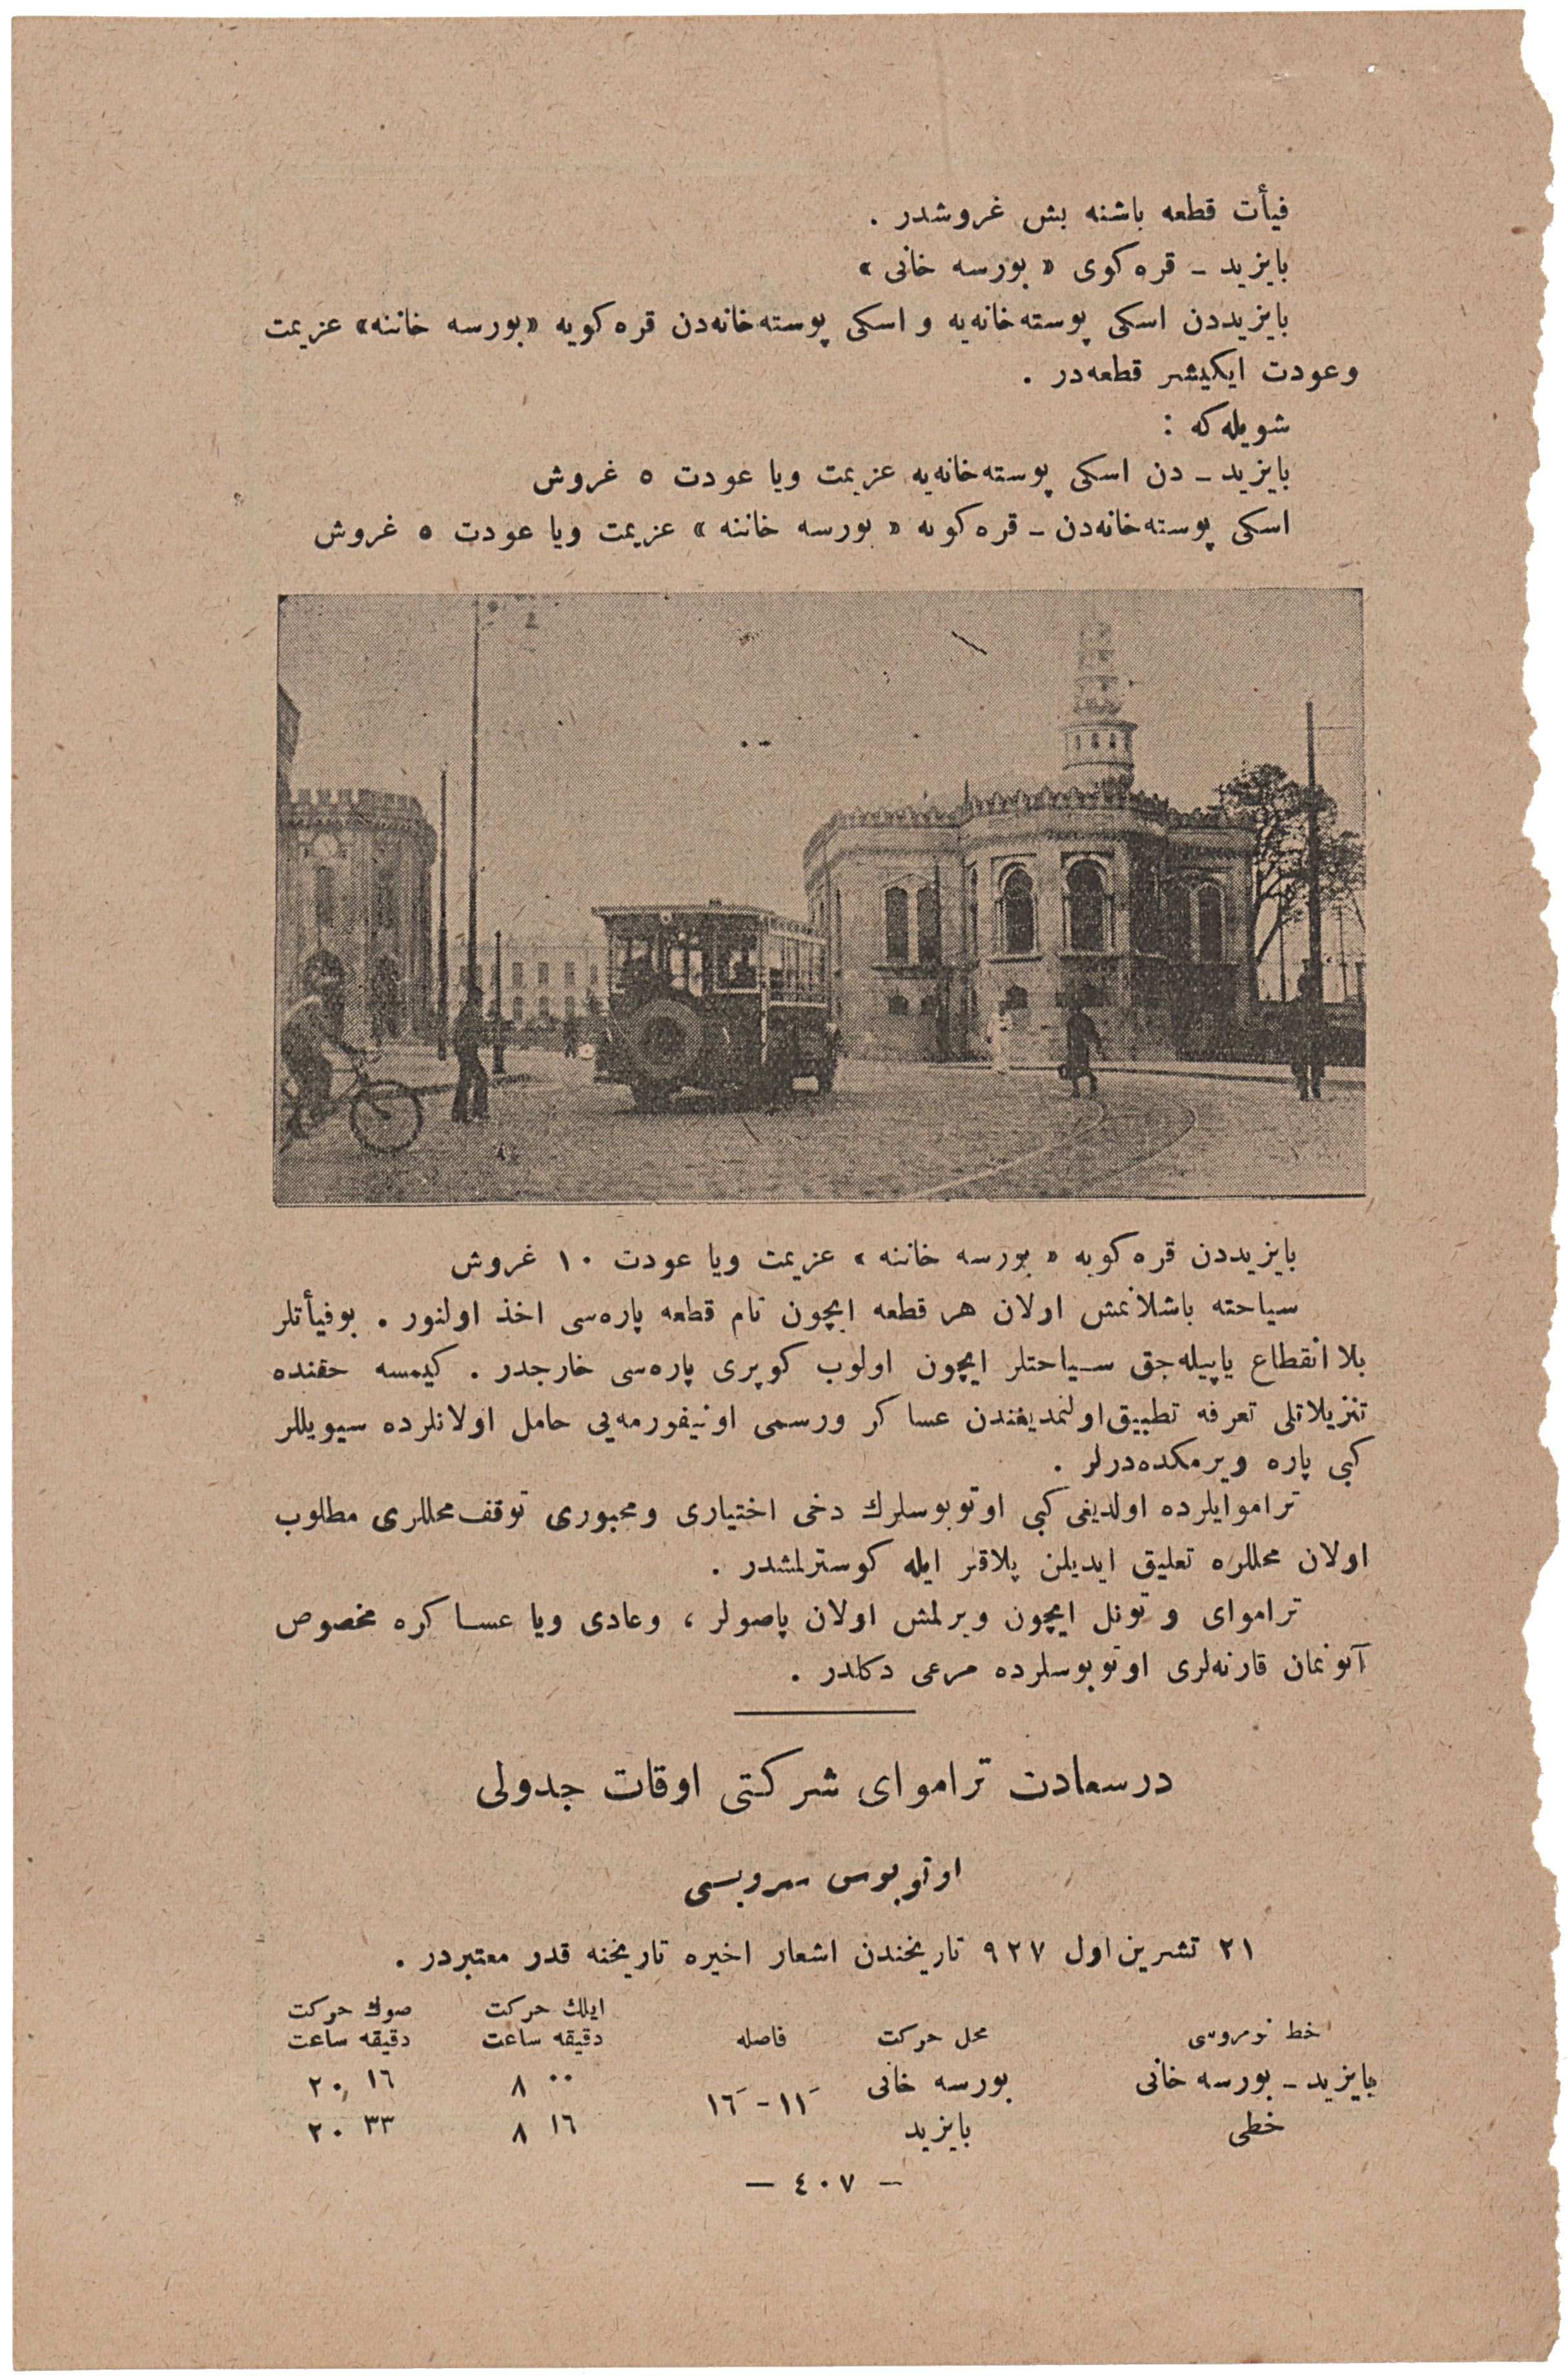 فيأت قطعه باشنه بش غروشدر .
بايزيد ـ قره‌كوی « بورسه خانی »
بايزيددن اسكی پوسته‌خانه‌يه و اسكی پوسته‌خانه‌دن قره‌كويه «بورسه خاننه» عزيمت
وعودت ايكيشر قطعه‌در .
شويله‌كه :
بايزيد ـ دن اسكی پوسته‌خانه‌يه عزيمت ويا عودت ٥ غروش
اسكی پوسته‌خانه‌دن ـ قره‌كويه « بورسه خاننه » عزيمت ويا عودت ٥ غروش
بايزيددن قره‌كويه « بورسه خاننه » عزيمت ويا عودت ١٠ غروش
سياحته باشلانمش اولان هر قطعه ايچون تام قطعه پاره‌سی اخذ اولنور . بوفيأتلر
بلا انقطاع ياپيله‌جق سياحتلر ايچون اولوب كوپری پاره‌سی خارجدر . كيمسه حقنده
تنزيلاتلی تعرفه تطبيق اولنمديغندن عساكر ورسمی اونيفورمه‌يی حامل اولانلرده سيويللر
كبی پاره ويرمكده‌درلر .
تراموايلرده اولديغی كبی اوتوبوسلرك دخی اختياری ومجبوری توقف محللری مطلوب
اولان محللره تعليق ايديلن پلاقلر ايله كوسترلمشدر .
تراموای و تونل ايچون ويرلمش اولان پاصولر ، وعادی ويا عساكره مخصوص
آبونمان قارنه‌لری اوتوبوسلرده مرعی دكلدر .
درسعادت تراموای شركتی اوقات جدولی
اوتوبوس سرويسی
٢١ تشرين‌اول ٩٢٧ تاريخندن اشعار اخيره تاريخنه قدر معتبردر .
ايلك حركت صوك حركت
خط نومروسی محل حركت فاصله دقيقه ساعت دقيقه ساعت
بايزيد ـ بورسه خانی بورسه خانی ١١ - ١٦ ٠٠ ٨ ١٦ ٢٠
خطی بايزيد ١٦ ٨ ٣٣ ٢٠
— ٤٠٧ —